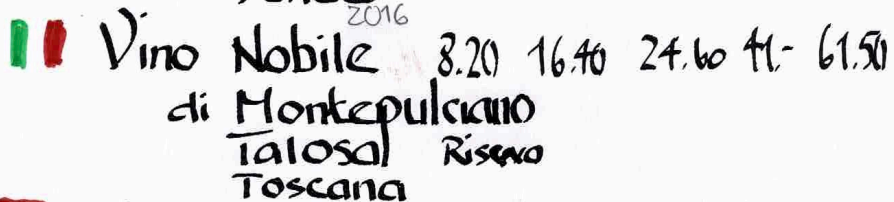 2016
Vino Nobile 8.20 16.40 24.60 41.- 61.50
di Montepulciano
Talosa Riserva
Toscana